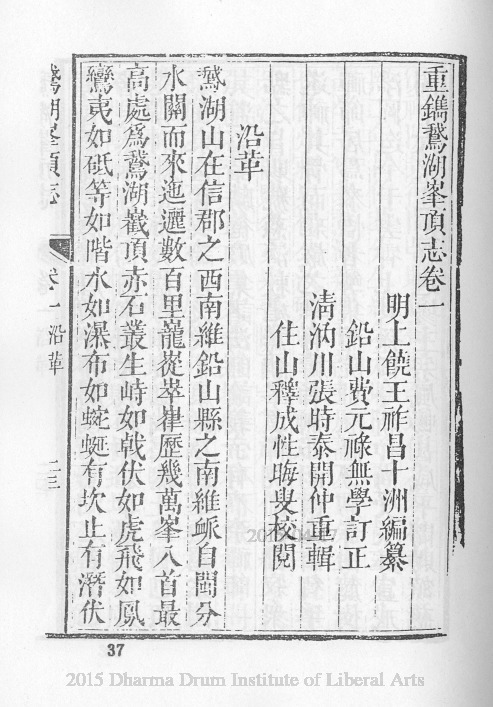 重鐫鵞湖峯頂志卷一
明上饒王祚昌十洲編纂
鉛山費元祿無學訂正
清泐川張時泰開仲重輯
住山釋成性晦叟校閱
沿革
鵞湖山在信郡之西南維鉛山縣之南維䘑自閩分
水關而來迤邐數百里巃嵸崒嵂歷幾萬峯八首最
高處爲鵞湖巀頂赤石叢生峙如戟伏如虎飛如鳳
鸞夷如砥等如階水如瀑布如蜿蜒有坎止有潛伏
鵞湖峯頂志
卷一 沿革
二三
37
2015 Dharma Drum Institute of Liberal Arts